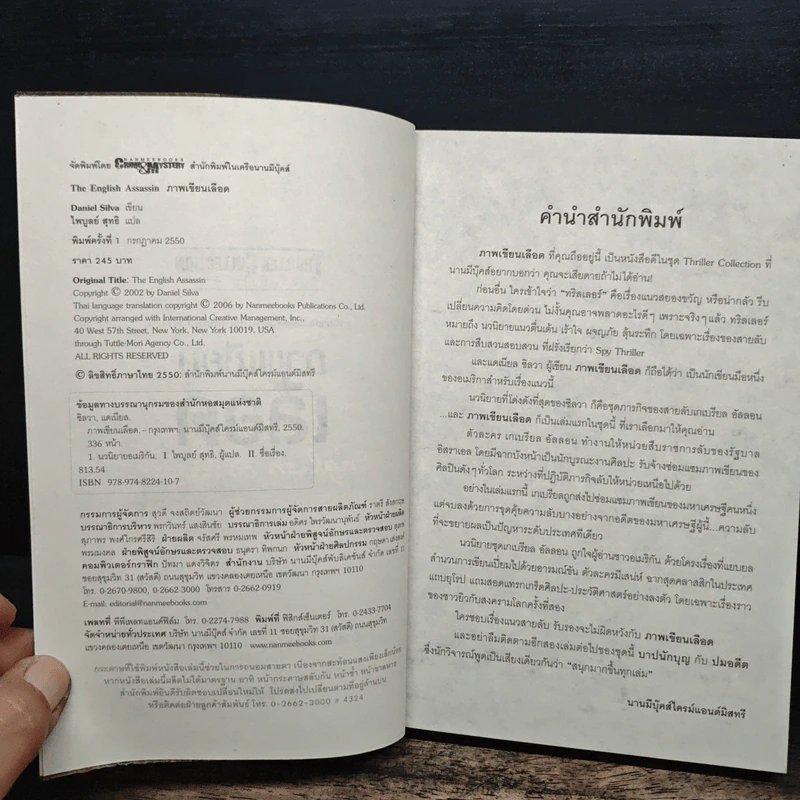 จัดพิมพ์โดย NANMEEBOOKS CRIME & MYSTERY สำนักพิมพ์ในเครือนานมีบุ๊คส์
The English Assassin ภาพเขียนเลือด
Daniel Silva เขียน
ไพบูลย์ สุทธิ แปล
พิมพ์ครั้งที่ 1 กรกฎาคม 2550
ราคา 245 บาท
Original Title: The English Assassin
Copyright © 2002 by Daniel Silva
Thai language translation copyright © 2006 by Nanmeebooks Publications Co., Ltd.
Copyright arranged with International Creative Management, Inc.,
40 West 57th Street, New York, New York 10019, USA
through Tuttle-Mori Agency Co., Ltd.
ALL RIGHTS RESERVED
© ลิขสิทธิ์ภาษาไทย 2550: สำนักพิมพ์นานมีบุ๊คส์ไครม์แอนด์มิสทรี
ข้อมูลทางบรรณานุกรมของสำนักหอสมุดแห่งชาติ
ซิลวา, แดเนียล.
ภาพเขียนเลือด.-- กรุงเทพฯ: นานมีบุ๊คส์ไครม์แอนด์มิสทรี, 2550.
336 หน้า
1. นวนิยายอเมริกัน. I. ไพบูลย์ สุทธิ, ผู้แปล. II. ชื่อเรื่อง.
813.54
ISBN 978-974-8224-10-7
กรรมการผู้จัดการ สุวดี จงสถิตย์วัฒนา ผู้ช่วยกรรมการผู้จัดการสายผลิตภัณฑ์ ราตรี
บรรณาธิการบริหาร พรกวินทร์ แสงสินชัย บรรณาธิการเล่ม อดิศร ไพรวัฒนานุพันธ์ หัวหน้าฝ่ายผลิต
สุภาพร พงศ์ไกรศรีสิริ ฝ่ายผลิต จรัสศรี พรหมเทพ หัวหน้าฝ่ายพิสูจน์อักษรและตรวจสอบ
พรมมงคล ฝ่ายพิสูจน์อักษรและตรวจสอบ ธนุตรา ทิพกนก หัวหน้าฝ่ายศิลปกรรม กฤษดา
คอมพิวเตอร์กราฟิก ปัทมา แดงวิจิตร สำนักงาน บริษัท นานมีบุ๊คส์พับลิเคชันส์ จำกัด เลขที่ 11
ซอยสุขุมวิท 31 (สวัสดี) ถนนสุขุมวิท แขวงคลองเตยเหนือ เขตวัฒนา กรุงเทพฯ 10110
โทร. 0-2670-9800, 0-2662-3000 โทรสาร 0-2662-0919
E-mail: editorial@nanmeebooks.com
เพลทที่ พีพีเพลทแอนด์ฟิล์ม โทร. 0-2274-7988 พิมพ์ที่ ฟิสิกส์เซ็นเตอร์ โทร. 0-2433-7704
จัดจำหน่ายทั่วประเทศ บริษัท นานมีบุ๊คส์ จำกัด เลขที่ 11 ซอยสุขุมวิท 31 (สวัสดี) ถนนสุขุมวิท
แขวงคลองเตยเหนือ เขตวัฒนา กรุงเทพฯ 10110 www.nanmeebooks.com
กระดาษที่ใช้พิมพ์หนังสือเล่มนี้ช่วยในการถนอมสายตา เนื่องจากสะท้อนแสงเพียงเล็กน้อย
หากหนังสือเล่มนี้ผลิตไม่ได้มาตรฐาน อาทิ หน้ากระดาษสลับกัน หน้าซ้ำ หน้าขาดหาย
สำนักพิมพ์ยินดีรับผิดชอบเปลี่ยนใหม่ให้ โปรดส่งไปเปลี่ยนตามที่อยู่ด้านบน
หรือติดต่อฝ่ายลูกค้าสัมพันธ์ โทร. 0-2662-3000 # 4324
คำนำสำนักพิมพ์
ภาพเขียนเลือด ที่คุณถืออยู่นี้ เป็นหนังสือดีในชุด Thriller Collection ที่
นานมีบุ๊คส์อยากบอกว่า คุณจะเสียดายถ้าไม่ได้อ่าน!
ก่อนอื่น ใครเข้าใจว่า “ทริลเลอร์” คือเรื่องแนวสยองขวัญ หรือน่ากลัว รีบ
เปลี่ยนความคิดโดยด่วน ไม่งั้นคุณอาจพลาดอะไรดีๆ เพราะจริงๆ แล้ว ทริลเลอร์
หมายถึง นวนิยายแนวตื่นเต้น เร้าใจ ผจญภัย ลุ้นระทึก โดยเฉพาะเรื่องของสายลับ
และการสืบสวนสอบสวน ที่ฝรั่งเรียกว่า Spy Thriller
และแดเนียล ซิลวา ผู้เขียน ภาพเขียนเลือด ก็ถือได้ว่า เป็นนักเขียนมือหนึ่ง
ของอเมริกาสำหรับเรื่องแนวนี้
นวนิยายที่โด่งดังที่สุดของซิลวา ก็คือชุดภารกิจของสายลับเกเบรียล อัลลอน
...และ ภาพเขียนเลือด ก็เป็นเล่มแรกในชุดนี้ ที่เราเลือกมาให้คุณอ่าน
ตัวละคร เกเบรียล อัลลอน ทำงานให้หน่วยสืบราชการลับของรัฐบาล
อิสราเอล โดยมีฉากบังหน้าเป็นนักบูรณะงานศิลปะ รับจ้างซ่อมแซมภาพเขียนของ
ศิลปินดังๆ ทั่วโลก ระหว่างที่ปฏิบัติภารกิจลับให้หน่วยเหนือไปด้วย
อย่างในเล่มแรกนี้ เกเบรียลถูกส่งไปซ่อมแซมภาพเขียนของมหาเศรษฐีคนหนึ่ง
แต่จบลงด้วยการขุดคุ้ยความลับบางอย่างจากอดีตของมหาเศรษฐีผู้นี้...ความลับ
ที่จะขยายผลเป็นปัญหาระดับประเทศทีเดียว
นวนิยายชุดเกเบรียล อัลลอน ถูกใจผู้อ่านชาวอเมริกัน ด้วยโครงเรื่องที่แยบยล
สำนวนการเขียนเปี่ยมไปด้วยอารมณ์ขัน ตัวละครมีเสน่ห์ ฉากสุดคลาสสิกในประเทศ
แถบยุโรป แถมสอดแทรกเกร็ดศิลปะ-ประวัติศาสตร์อย่างลงตัว โดยเฉพาะเรื่องราว
ของชาวยิวกับสงครามโลกครั้งที่สอง
ใครชอบเรื่องแนวสายลับ รับรองจะไม่ผิดหวังกับ ภาพเขียนเลือด
และอย่าลืมติดตามอีกสองเล่มต่อไปของชุดนี้ บาปนักบุญ กับ ปมอดีต
ซึ่งนักวิจารณ์พูดเป็นเสียงเดียวกันว่า “สนุกมากขึ้นทุกเล่ม”
นานมีบุ๊คส์ไครม์แอนด์มิสทรี